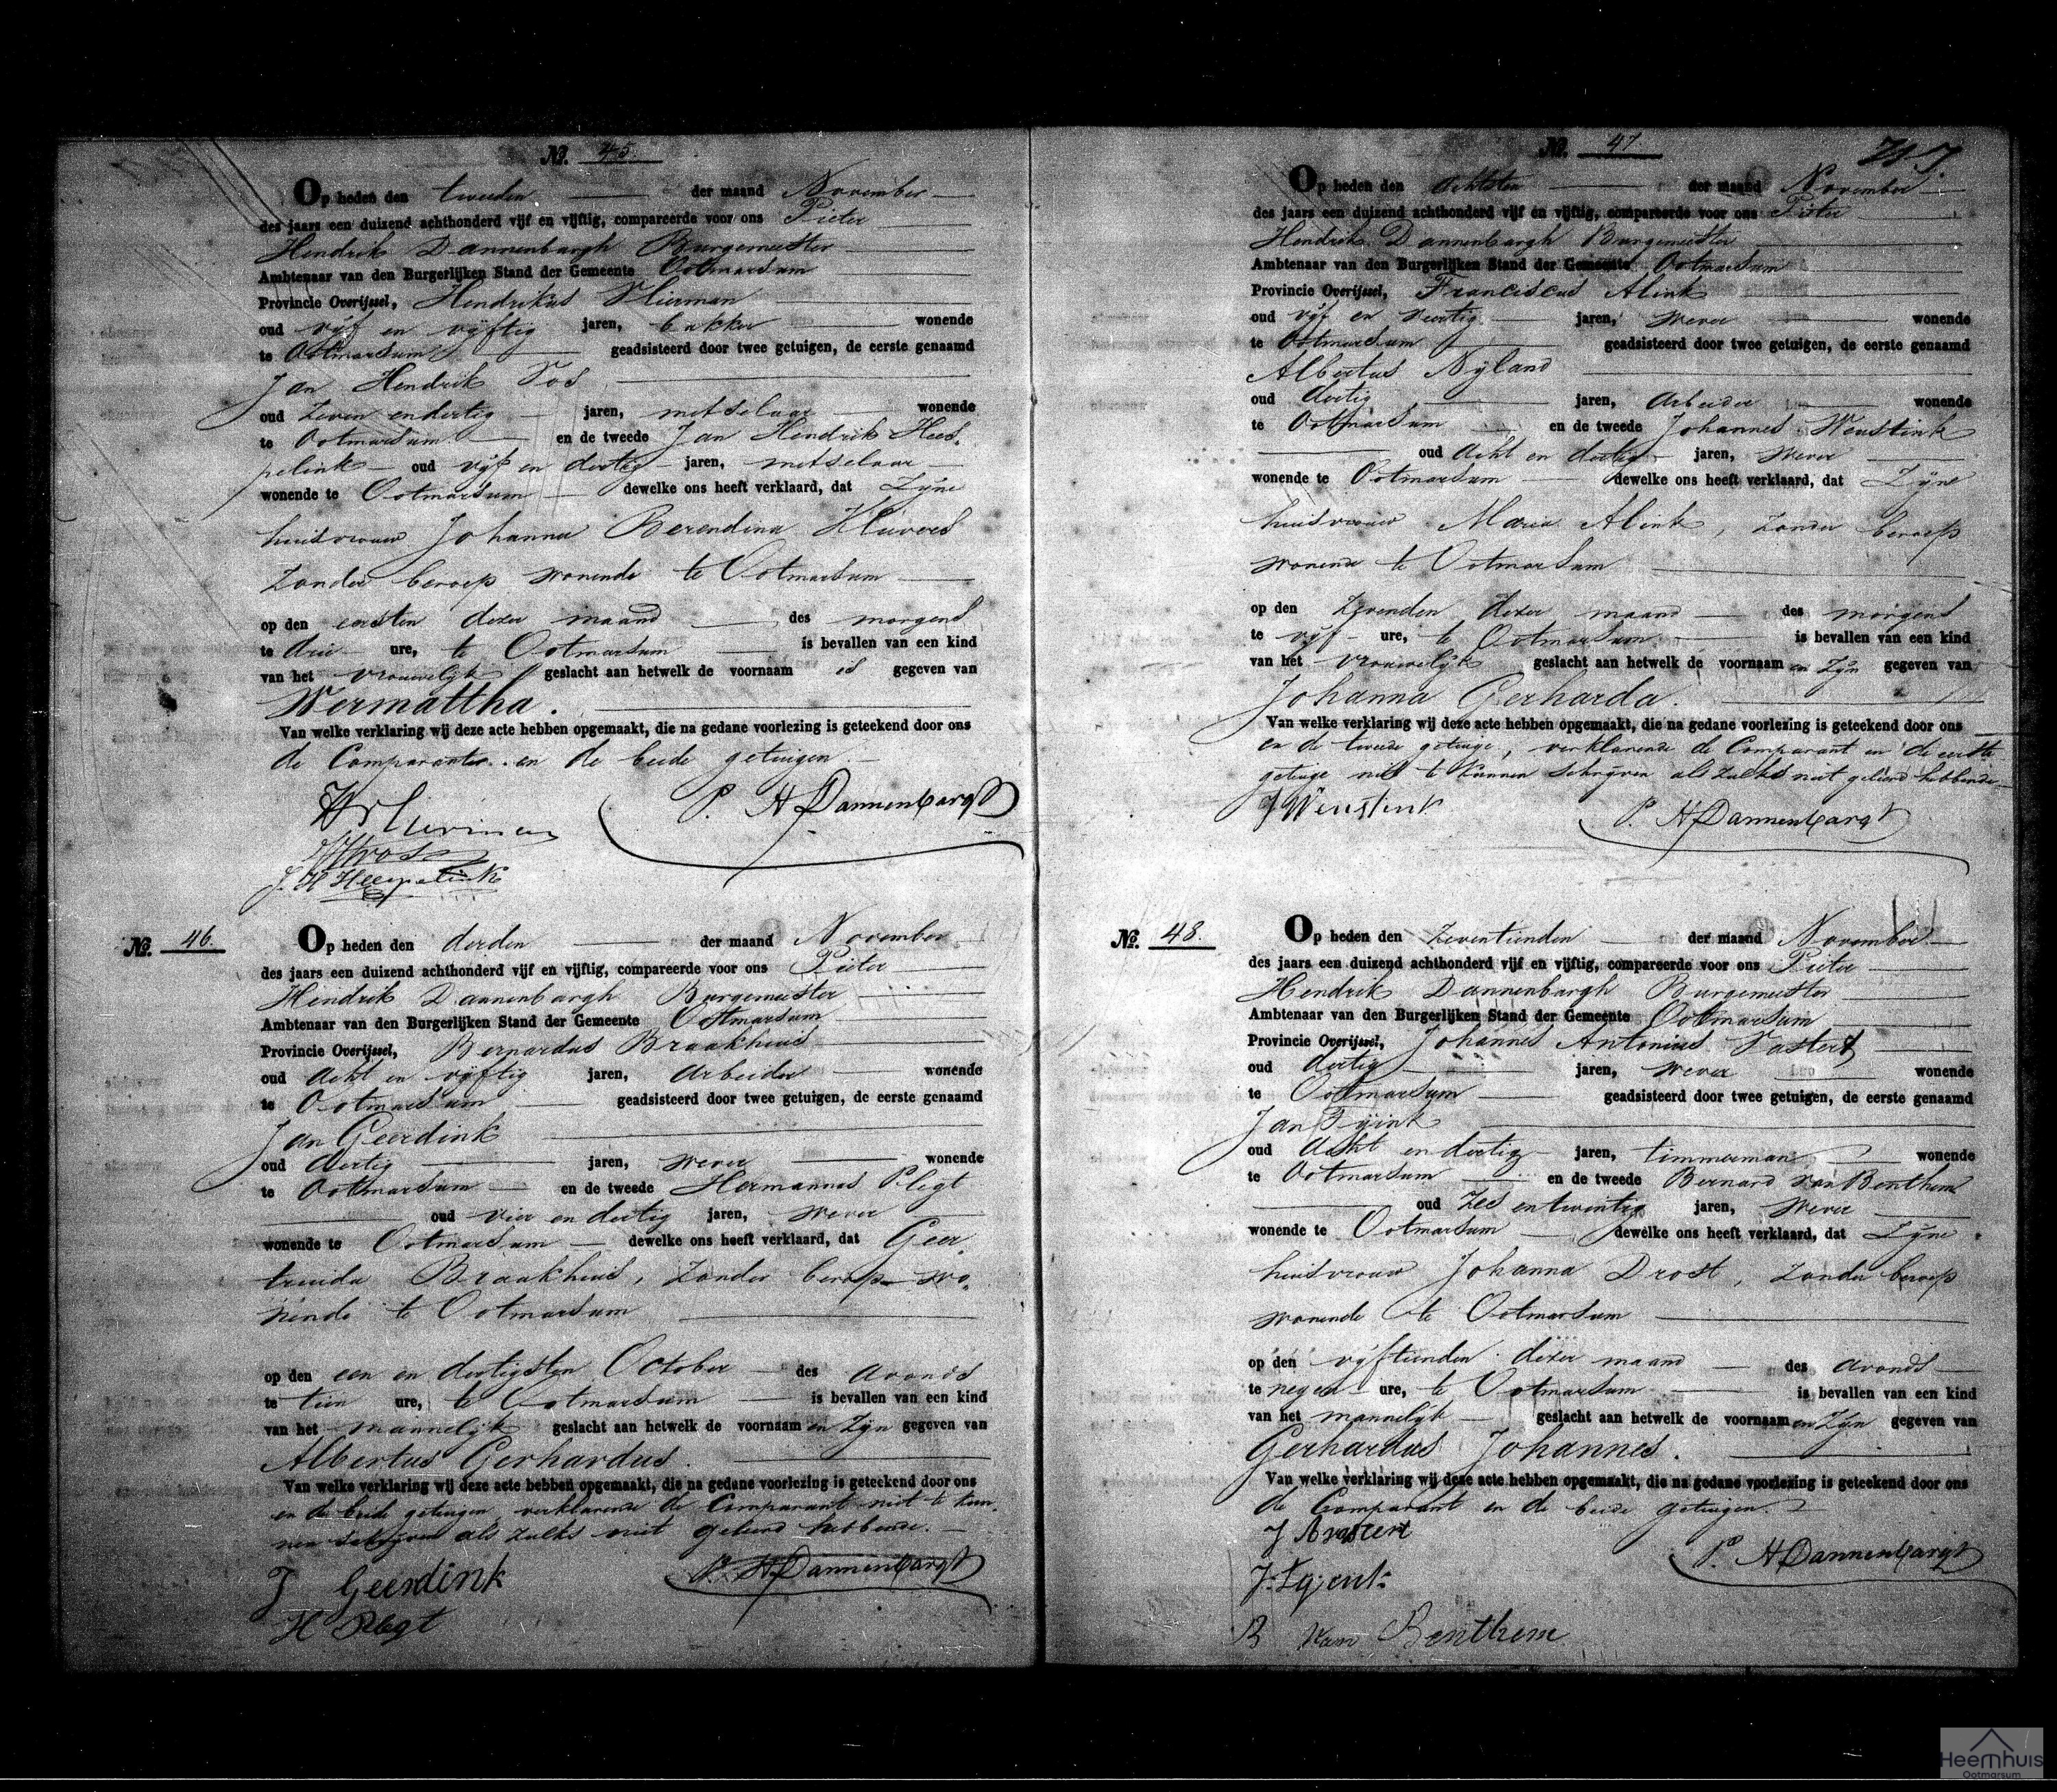 No. 45.
Op heden den tweeden der maand November
des jaars een duizend achthonderd vijf en vijftig, compareerde voor ons Pieter
Hendrik Dannenbargh Burgemeester
Ambtenaar van den Burgerlijken Stand der Gemeente Ootmarsum
Provincie Overijssel, Hendrikus
oud vijf en vijftig jaren, bakker wonende
te Ootmarsum geadsisteerd door twee getuigen, de eerste genaamd
Jan Hendrik Vos
oud zeven en dertig jaren, metselaar wonende
te Ootmarsum en de tweede Jan Hendrik Hees-
pelink oud vijf en dertig jaren, metselaar
wonende te Ootmarsum dewelke ons heeft verklaard, dat Zijne
huisvrouw Johanna Berendina
zonder beroep wonende te Ootmarsum
op den eersten dezer maand des morgens
te drie ure, te Ootmarsum is bevallen van een kind
van het vrouwelijk geslacht aan hetwelk de voornaam is gegeven van
Wermattha.
Van welke verklaring wij deze acte hebben opgemaakt, die na gedane voorlezing is geteekend door ons
de Comparanter en de beide getuigen
P. H Dannenbargh
J. H Heespelink
No. 46.
Op heden den derden der maand November
des jaars een duizend achthonderd vijf en vijftig, compareerde voor ons Pieter
Hendrik Dannenbargh Burgemeester
Ambtenaar van den Burgerlijken Stand der Gemeente Ootmarsum
Provincie Overijssel, Bernardus Braakhuis
oud acht en vijftig jaren, arbeider wonende
te Ootmarsum geadsisteerd door twee getuigen, de eerste genaamd
Jan Geerdink
oud dertig jaren, wever wonende
te Ootmarsum en de tweede Hermannus Plegt
oud vier en dertig jaren, wever
wonende te Ootmarsum dewelke ons heeft verklaard, dat Geer-
truida Braakhuis, zonder beroep wo-
nende te Ootmarsum
op den een en dertigsten October des avonds
te tien ure, te Ootmarsum is bevallen van een kind
van het mannelijk geslacht aan hetwelk de voornaam en zijn gegeven van
Albertus Gerhardus.
Van welke verklaring wij deze acte hebben opgemaakt, die na gedane voorlezing is geteekend door ons
en de beide getuigen, verklarende de Comparant niet te kun-
nen schrijven als zulks niet geleerd hebbende.
J Geerdink
P. H Dannenbargh
H Plegt
No. 47.
Op heden den achtsten der maand November
des jaars een duizend achthonderd vijf en vijftig, compareerde voor ons Pieter
Hendrik Dannenbargh Burgemeester
Ambtenaar van den Burgerlijken Stand der Gemeente Ootmarsum
Provincie Overijssel, Franciscus Alink
oud vijf en veertig jaren, wever wonende
te Ootmarsum geadsisteerd door twee getuigen, de eerste genaamd
Albertus Nijland
oud dertig jaren, arbeider wonende
te Ootmarsum en de tweede Johannes Weustink
oud acht en dertig jaren, wever
wonende te Ootmarsum dewelke ons heeft verklaard, dat Zijne
huisvrouw Maria Alink, zonder beroep
wonende te Ootmarsum
op den zevenden dezer maand des morgens
te vijf ure, te Ootmarsum is bevallen van een kind
van het vrouwelijk geslacht aan hetwelk de voornaam en zijn gegeven van
Johanna Gerharda.
Van welke verklaring wij deze acte hebben opgemaakt, die na gedane voorlezing is geteekend door ons
en de tweede getuige, verklarende de Comparant en de eerste
getuige niet te kunnen schrijven als zulks niet geleerd hebbende
J Weustink
P. H Dannenbargh
No. 48.
Op heden den zeventienden der maand November
des jaars een duizend achthonderd vijf en vijftig, compareerde voor ons Pieter
Hendrik Dannenbargh Burgemeester
Ambtenaar van den Burgerlijken Stand der Gemeente Ootmarsum
Provincie Overijssel, Johannes Antonius Vastert
oud dertig jaren, wever wonende
te Ootmarsum geadsisteerd door twee getuigen, de eerste genaamd
Jan Tijink
oud acht en dertig jaren, timmerman wonende
te Ootmarsum en de tweede Bernard van Benthem
oud zes en twintig jaren, wever
wonende te Ootmarsum dewelke ons heeft verklaard, dat Zijne
huisvrouw Johanna Drost, zonder beroep
wonende te Ootmarsum
op den vijftienden dezer maand des avonds
te negen ure, te Ootmarsum is bevallen van een kind
van het mannelijk geslacht aan hetwelk de voornaam en zijn gegeven van
Gerhardus Johannes.
Van welke verklaring wij deze acte hebben opgemaakt, die na gedane voorlezing is geteekend door ons
de Comparant en de beide getuigen.
P. H Dannenbargh
B van Benthem
Heemhuis
Ootmarsum